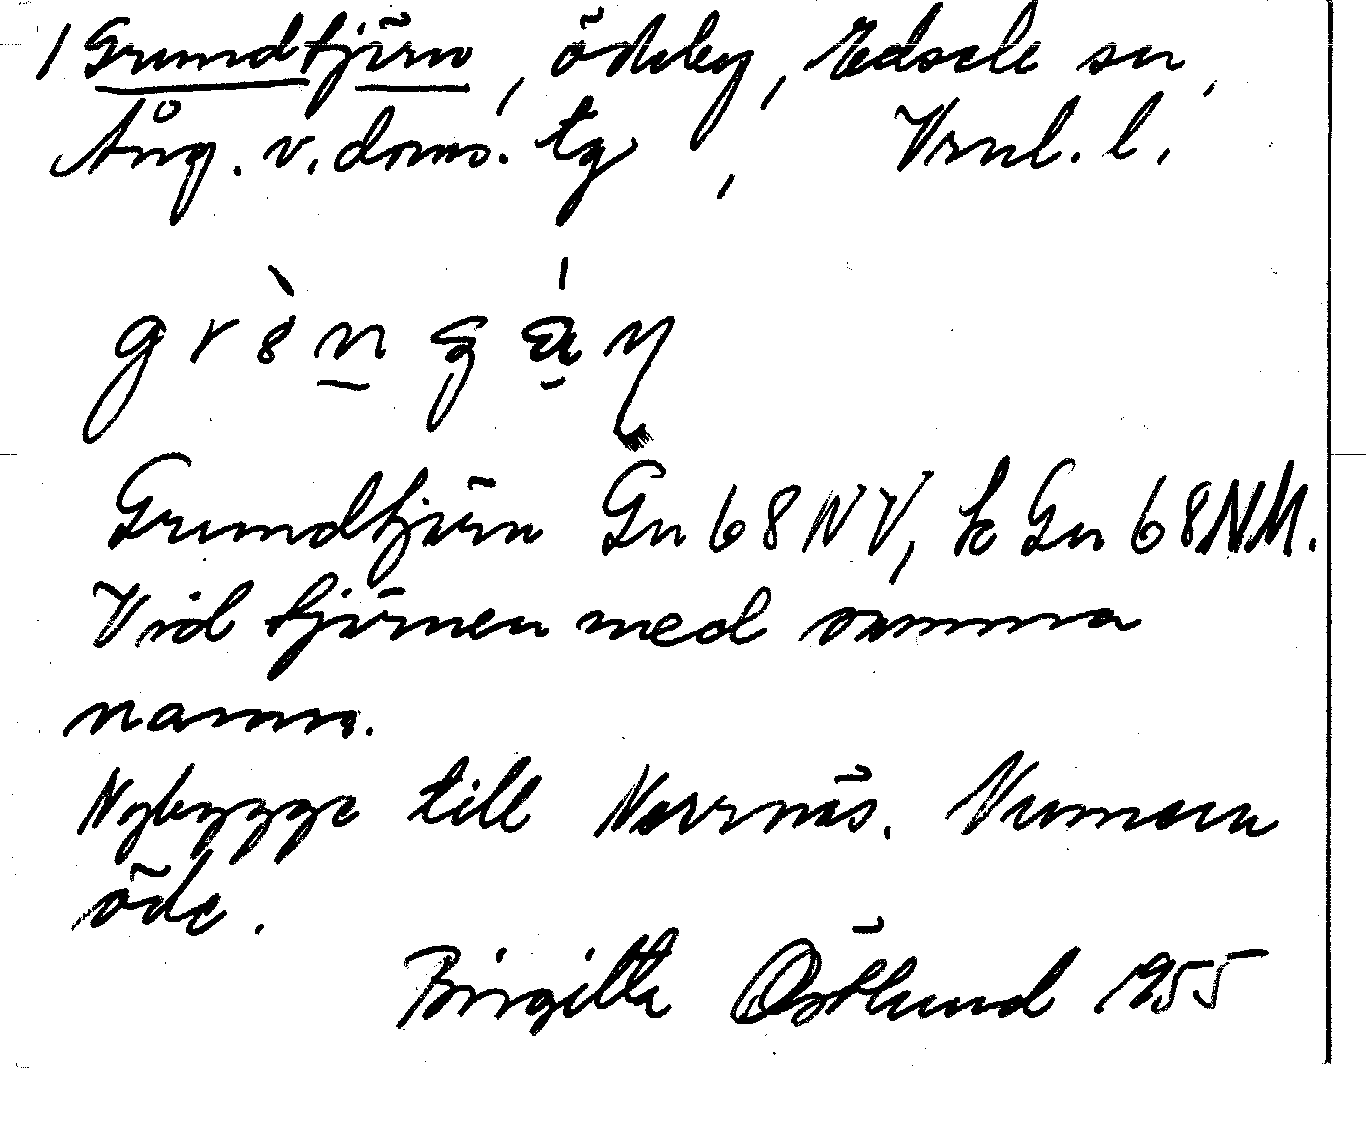 1 Grundtjärn, ödeby, Edsele sn,
Ång. v. doms. tg, Vrnl. l.
Grundtjärn Gn 68 NV, k Gn 68 NM.
Vid tjärnen med samma
namn.
Nybygge till Norrnäs. Numera
öde.
Birgitta Östlund 1955